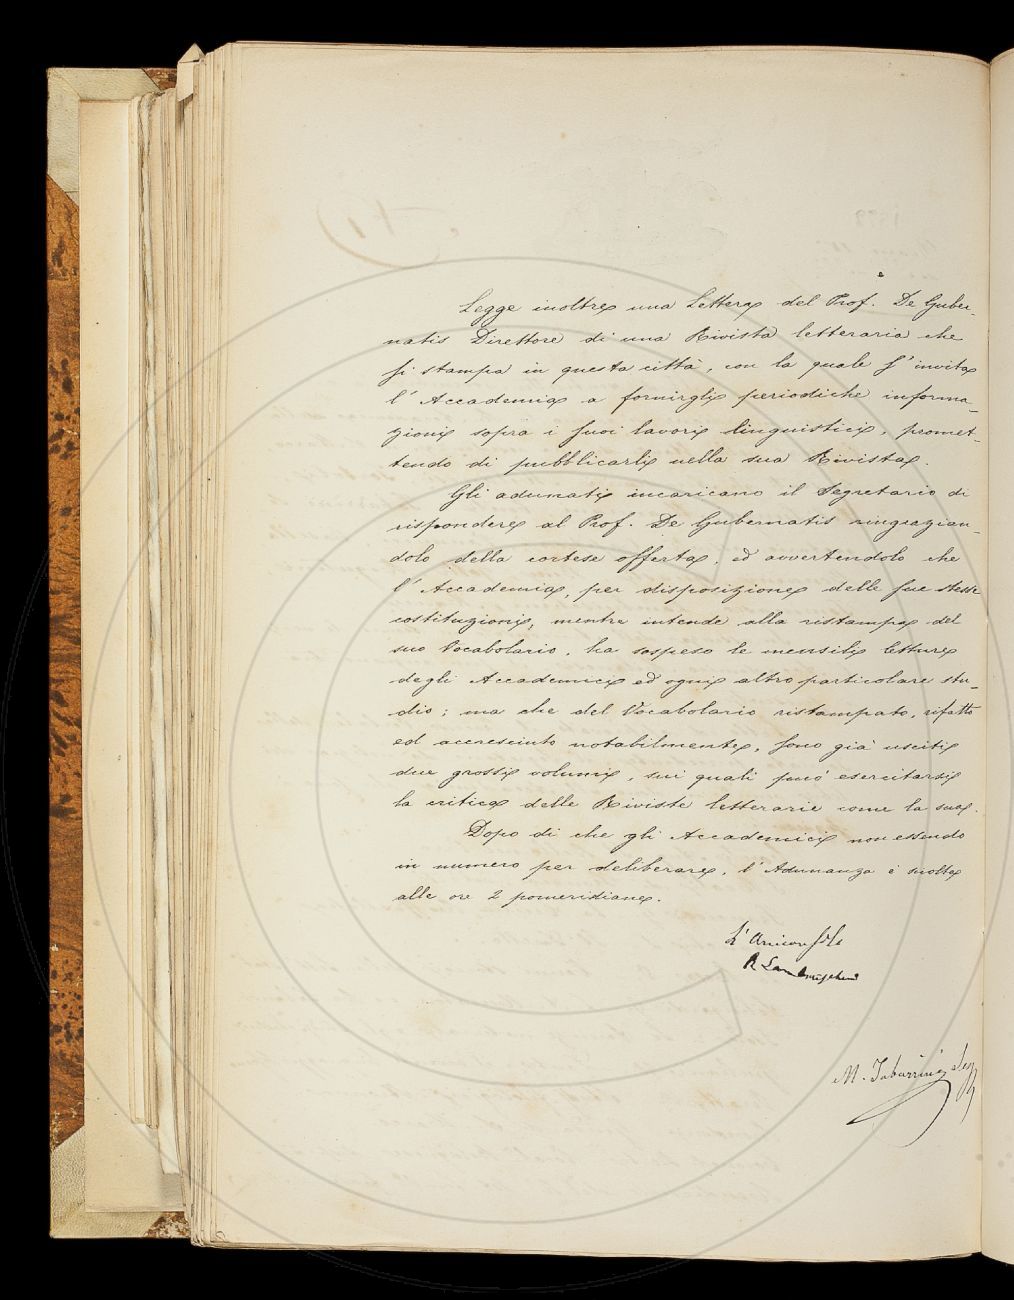 Legge inoltre una Lettera del Prof. De Guber-
natis Direttore di una Rivista letteraria che
si stampa in questa città, con la quale s'invita
l'Accademia a fornirgli periodiche informa-
zioni sopra i suoi lavori linguistici, promet-
tendo di pubblicarli nella sua Rivista.
Gli adunati incaricano il Segretario di
rispondere al Prof. De Gubernatis ringrazian-
dolo della cortese offerta, ed avvertendolo che
l'Accademia, per disposizione delle sue stesse
costituzioni, mentre intende alla ristampa del
suo Vocabolario, ha sospeso le mensili letture
degli Accademici ed ogni altro particolare stu-
dio; ma che del Vocabolario ristampato, rifatto
ed accresciuto notabilmente, sono già usciti
due grossi volumi, sui quali può esercitarsi
la critica delle Riviste letterarie come la sua.
Dopo di che gli Accademici non essendo
in numero per deliberare, l'Adunanza è sciolta
alle ore 2 pomeridiane.
L'Arciconsolo
R Lambruschini
M. Tabarrini Seg